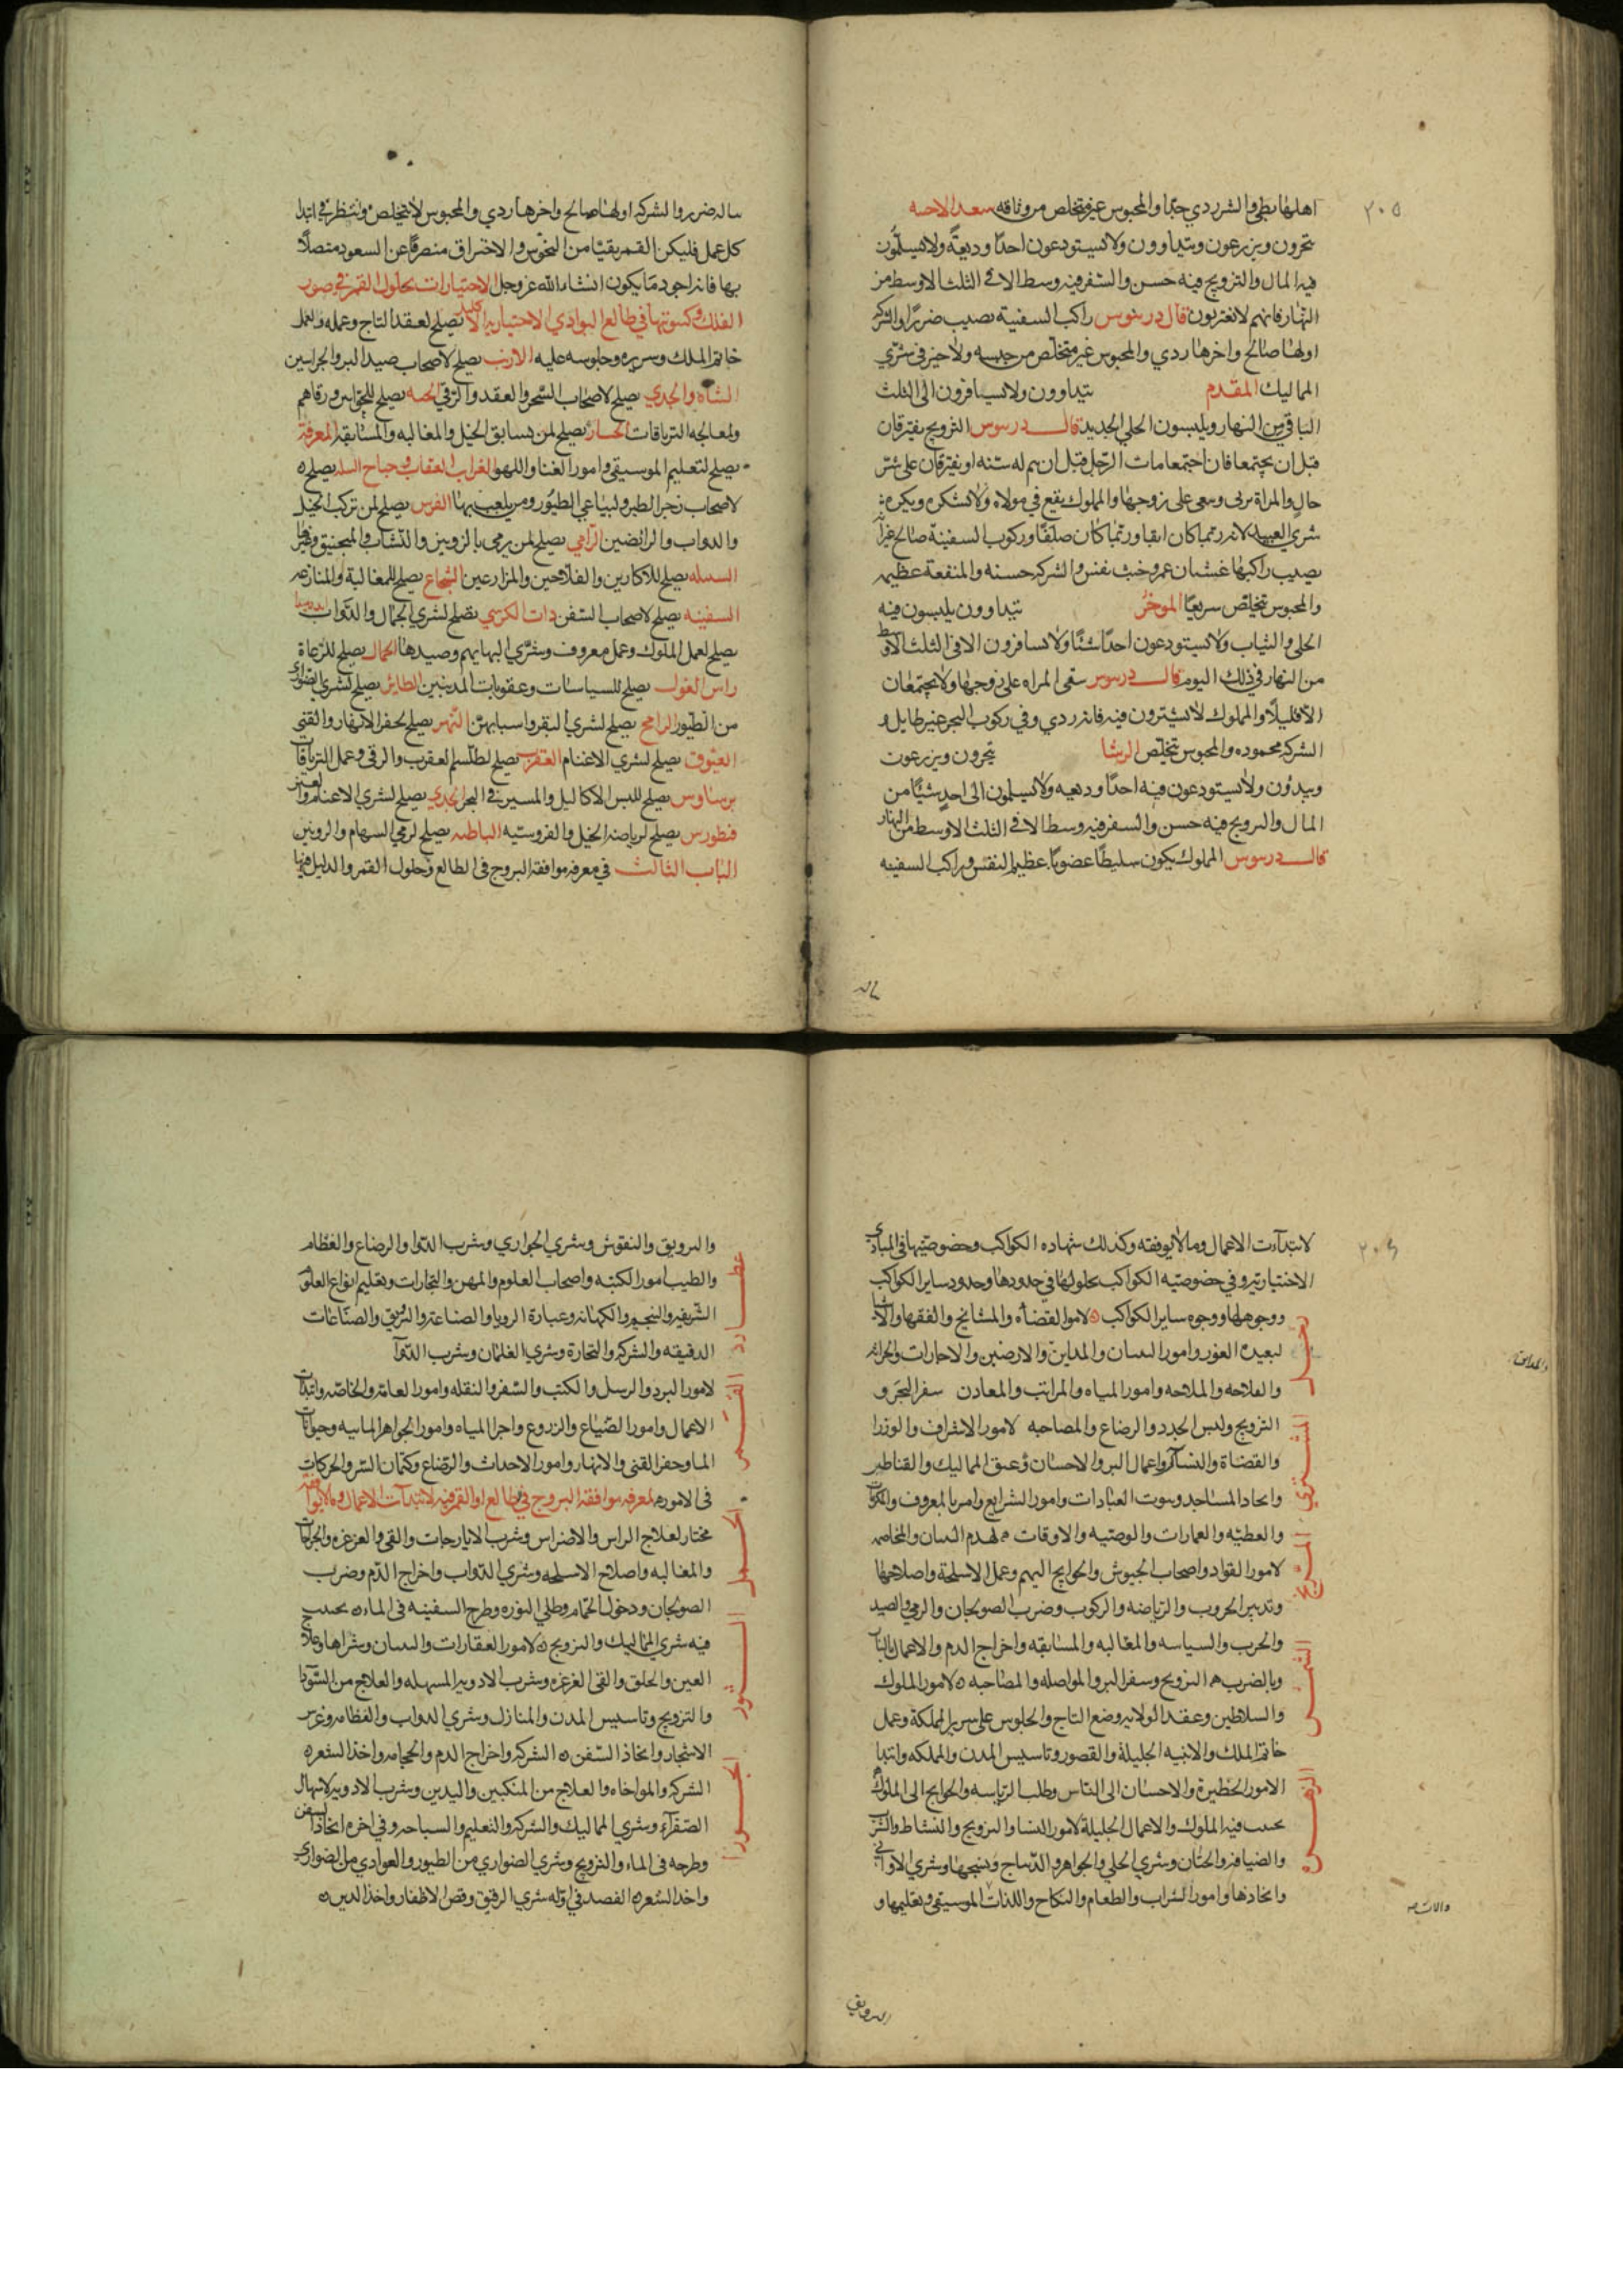 ٢٠٥
اهلها بطي والشر ردي جدا والمحبوس غير متخلص من وثاقه سعد الاخبيه
تتحرون ويزرعون ويتداوون ولا يستودعون احدا وديعة ولا يسلمون
فيه المال والتزويج فيه حسن والسفر فيه وسط الا في الثلث الاوسط من
النهار فانهم لا يغتربون قال دريوس راكب السفينة يصيب ضررا والشركة
اولها صالح واخرها ردي والمحبوس غير متخلص من حبسه ولا خير في شري
المماليك المقدم يتداوون ولا يسافرون الى الثلث
الباقي من النهار ويلبسون الحلي الجديد قال دريوس التزويج يفترقان
قبل ان يجتمعا فان اجتمعا مات الرجل قبل ان يتم له سنه او يفترقان على شر
حال والمراة تزني وسعى على زوجها والمملوك يقع في مولاه ولا يشكره ويكره
شري العبيد لانه ربما كان ابقا وربما كان صلفا وركوب السفينة صالح غير انه
يصيب راكبها غشيان غم وخبث نفس والشركة حسنه والمنفعة عظيمه
والمحبوس يتخلص سريعا الموخر يتداوون يلبسون فيه
الحلي والثياب ولا يستودعون احدا شئا ولا يسافرون الا في الثلث الاوسط
من النهار في ذلك اليوم قال دريوس سقى المراه على زوجها ولا يجتمعان
الا قليلا والمملوك لا يشترون فيه فانه ردي وفي ركوب البحر غير طايل و
الشركة محموده والمحبوس يتخلص الرشا يتجرون ويزرعون
ويبدؤن ولا يستودعون فيه احدا وديعه ولا يسلمون الى احد شيئا من
المال والتزويج فيه حسن والسفر فيه وسط الا في الثلث الاوسط من النهار
قال دريوس المملوك يكون سليطا غضوبا عظيم النفس وراكب السفينه
ناله
ناله ضرر والشركه اولها صالح واخرها ردي والمحبوس لا يتخلص وانتظر في ابتدا
كل عمل فليكن القمر نقيا من النحوس والاحتراق منصرفا عن السعود متصلا
بها فانه اجود ما يكون انشاء الله عز وجل الاختيارات بحلول القمر في صور
الفلك وكسوتها في طالع البوادي الاختياريه الاكليل تصلح لعقد التاج وعمله ولعمل
خاتم الملك وسريره وجلوسه عليه الارنب يصلح لاصحاب صيد البر والجراسين
الشاه والجدي يصلح لاصحاب السحر والعقد والرقي الحيه يصلح للحواس ورقاهم
ولمعالجه الترياقات الحسار يصلح لمن يسابق الخيل والمغالبه والمسابقه المعرفة
يصلح لتعليم الموسيقي وامور الغنا واللهو الغراب العقاب وجناح السله يصلح
لاصحاب زجر الطير ولبياعي الطيور ومن يلعب بها الفرس يصلح لمن تركب الخيل
والدواب والرائضين الرامي يصلح لمن يرمي بالزوبين والنشاب والمنجنيق وغيرها
السنبله يصلح للاكارين والفلاحين والمزارعين الشجاع يصلح للمغالبة والمنازعه
السفينه يصلح لاصحاب السفن ذات الكرسي يصلح لشري الجمال والدواب
يصلح لعمل الملوك وعمل معروف وشري البهايم وصيدها الحمال يصلح للرعاة
راس الغول يصلح للسياسات وعقوبات المدنبين الطائر يصلح لشري الضواري
من الطيور الرامح يصلح لشري البقر واسبابهن النهر يصلح لحفر الانهار والقني
العيوق يصلح لشري الاغنام العقرب يصلح لطلسم العقرب والرقي وعمل الترياقات
برساوس يصلح للبس الاكاليل والمسير في البحر الجدي يصلح لشري الاغنام والعنز
قنطورس يصلح لرياضه الخيل والفروسيه الباطيه يصلح لرمي السهام والزوبين
الباب الثالث في معرفه موافقة البروج في الطالع وحلول القمر والدليل فيها
٢٠٦
لابتداءات الاعمال وما لا يوفقه وكذلك شهاده الكواكب وخصوصيتها في المبادي
الاختياريه وفي خصوصيه الكواكب بحلولها في حدودها وحدود ساير الكواكب
ووجوهها ووجوه ساير الكواكب زحل لامور القضاه والمشائخ والفقها
لبعيدة الغور وامور البنيان والمداين والارضين والاجارات والحراثه
والفلاحه والملاحه وامور المياه والمراتب والمعادن سفر البحر و
التزويج ولبس الجدد والرضاع والمصاحبه المشتري لامور الاشراف والوزرا
والقضاة والنساك واعمال البر والاحسان وعتق المماليك والقناطير
واتحاد المساجد وبيوت العبادات وامور الشرايع وامر بالمعروف
والعطيه والعمارات والوصيه والاوقات هدم البنيان والمخاصمه
المريخ لامور القواد واصحاب الجيوش والحوايج اليهم وعمل الاسلحة واصلاحها
وتدبير الحروب والرياضه والركوب وضرب الصولجان والرمي والصيد
والحرب والسياسه والمغالبه والمسابقه واخراج الدم والاعمال بالنار
وبالضرب التزويج وسفر البر والمواصله والمصاحبه الشمس لامور الملوك
والسلاطين وعقد الولايه وضع التاج والجلوس على سرير المملكة وعمل
خاتم الملك والابنيه الجليلة والقصور وتاسيس المدن والمملكه وابتدا
الامور الخطيرة والاحسان الى الناس وطلب الرياسه والحوايج الى الملوك
يجتنب فيه الملوك والاعمال الجليلة الزهره لامور النسا والتزويج والنشاط والشرب
والضيافه والختان وشري الحلي والجواهر والديباج ونسجها وشري الاواني
واتخاذها وامور الشراب والطعام والنكاح واللذات الموسيقي وتعليمها و
والتزويق
والتزويق والنقوش وشري الجواري وشرب الدوا والرضاع والفطام
والطيب عطارد امور الكتبه واصحاب العلوم والمهن والتجارات وتعليم انواع العلوم
الشريفه والنجوم والكهانه وعبارة الرويا والصناعة والصناعات
الدقيقه والشركه والتجارة وشري الغلمان وشرب الدوا
القمر لامور البرد والرسل والكتب والسفر والنقله وامور العامه والخاصه وابتداآت
الاعمال وامور الضياع والزروع واجرا المياه وامور الجواهر المائيه وحيوانات
الما وحفر القني والانهار وامور الاحداث والرضاع وكتمان السر والحركات
في الامور لمعرفه موافقه البروج في طالع او القمر فيه لابتدآت الاعمال وما لا يوافقه
الحمل مختار لعلاج الراس والاضراس وشرب الايارجات والقي والغرغره
والمغالبه واصلاح الاسلحه وشري الدواب واخراج الدم وضرب
الصولجان ودخول الحمام وطلي النوره وطرح السفينه في الماء يجتنب
فيه شري المماليك والتزويج الثور لامور العقارات والبنيان وشراها
العين والحلق والقي الغرغره وشرب الادويه المسهله والعلاج من السودا
والتزويج وتاسيس المدن والمنازل وشري الدواب والفطام وغرس
الاشجار واتخاذ السفن الشركه واخراج الدم والحجامه واخذ الشعر
الجوزا الشركه والمواخاه والعلاج من المنكبين واليدين وشرب الادويه لاسهال
الصفرآء وشري المماليك والشركه والتعليم والسباحه وفي اخره اتخاذ السفن
وطرحه في الماء والتزويج وشري الضواري من الطيور والعوادي من الضواري
واخذ الشعر الفصد في اوله شري الرقيق وقص الاظفار واخذ الدين